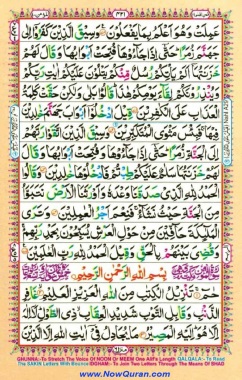 عَمِلَتْ وَهُوَ أَعْلَمُ بِمَا يَفْعَلُونَ وَسِيقَ الَّذِينَ كَفَرُوا إِلَىٰ
جَهَنَّمَ زُمَرًا حَتَّىٰ إِذَا جَاءُوهَا فُتِحَتْ أَبْوَابُهَا وَقَالَ لَهُمْ
خَزَنَتُهَا أَلَمْ يَأْتِكُمْ رُسُلٌ مِنْكُمْ يَتْلُونَ عَلَيْكُمْ آيَاتِ رَبِّكُمْ
وَيُنْذِرُونَكُمْ لِقَاءَ يَوْمِكُمْ هَٰذَا قَالُوا بَلَىٰ وَلَٰكِنْ حَقَّتْ كَلِمَةُ
الْعَذَابِ عَلَى الْكَافِرِينَ قِيلَ ادْخُلُوا أَبْوَابَ جَهَنَّمَ خَالِدِينَ
فِيهَا فَبِئْسَ مَثْوَى الْمُتَكَبِّرِينَ وَسِيقَ الَّذِينَ اتَّقَوْا رَبَّهُمْ
إِلَى الْجَنَّةِ زُمَرًا حَتَّىٰ إِذَا جَاءُوهَا وَفُتِحَتْ أَبْوَابُهَا وَقَالَ
لَهُمْ خَزَنَتُهَا سَلَامٌ عَلَيْكُمْ طِبْتُمْ فَادْخُلُوهَا خَالِدِينَ وَقَالُوا
الْحَمْدُ لِلَّهِ الَّذِي صَدَقَنَا وَعْدَهُ وَأَوْرَثَنَا الْأَرْضَ نَتَبَوَّأُ
مِنَ الْجَنَّةِ حَيْثُ نَشَاءُ فَنِعْمَ أَجْرُ الْعَامِلِينَ وَتَرَى
الْمَلَائِكَةَ حَافِّينَ مِنْ حَوْلِ الْعَرْشِ يُسَبِّحُونَ بِحَمْدِ رَبِّهِمْ
وَقُضِيَ بَيْنَهُمْ بِالْحَقِّ وَقِيلَ الْحَمْدُ لِلَّهِ رَبِّ الْعَالَمِينَ
بِسْمِ اللَّهِ الرَّحْمَٰنِ الرَّحِيمِ
حم تَنْزِيلُ الْكِتَابِ مِنَ اللَّهِ الْعَزِيزِ الْعَلِيمِ غَافِرِ
الذَّنْبِ وَقَابِلِ التَّوْبِ شَدِيدِ الْعِقَابِ ذِي الطَّوْلِ لَا إِلَٰهَ
إِلَّا هُوَ إِلَيْهِ الْمَصِيرُ مَا يُجَادِلُ فِي آيَاتِ اللَّهِ إِلَّا
GHUNNA:-To Stretch The Voice Of NOON Or MEEM One Alif's Length QALQALA:-To Read
The SAKIN Letters With Bounce IDGHAM:-To Join Two Letters Through The Means Of SHAD
www.NowQuran.com